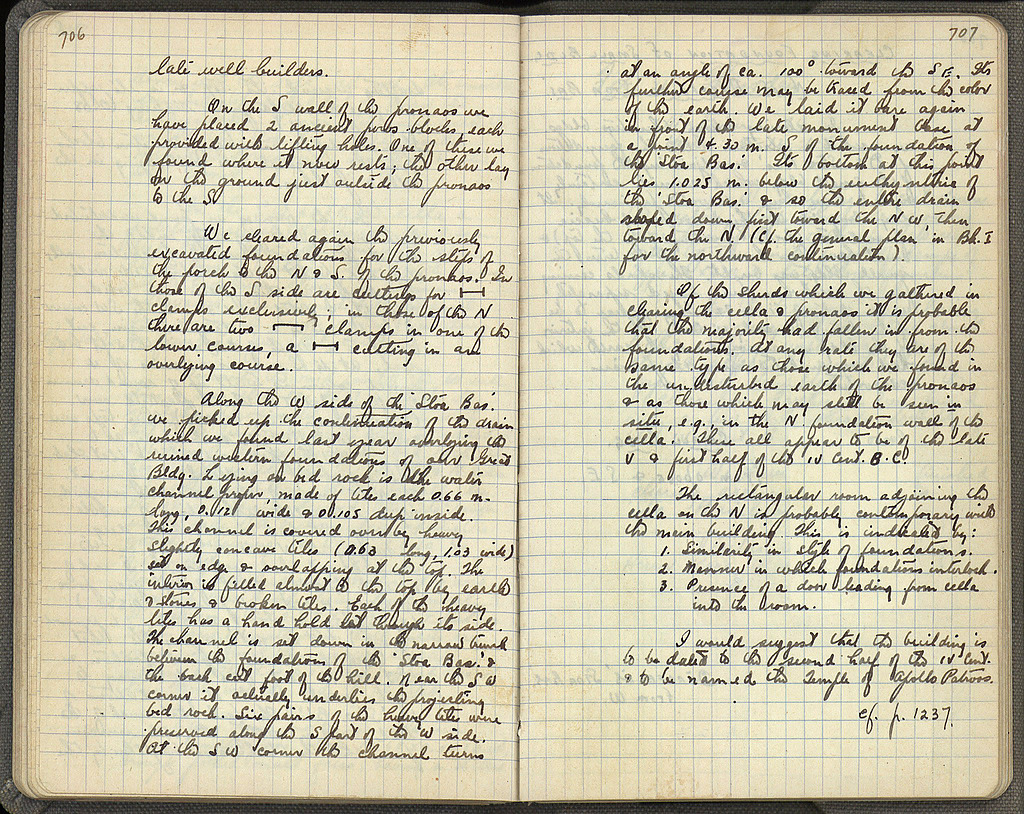 706
late well-builders.
On the S wall of the pronaos we
have placed 2 ancient poros blocks, each
provided with lifting holes. One of these we
found where it now rests; the other lay
on the ground just outside the pronaos
to the S.
We cleared again the previously
excavated foundations for the steps of
the porch to the N & S. of the pronaos. In
those of the S side are cuttings for
clamps exclusively; in those of the N
there are two clamps in one of the
lower courses, a cutting in an
overlying course.
Along the W side of the 'Stoa Bas.'
we picked up the continuation of the drain
which we found last year overlying the
ruined western foundations of our Great
Bldg. Lying on bed rock is the water
channel proper, made of tiles each 0.66 m.
long, 0.12 wide & 0.105 deep inside.
This channel is covered over by heavy
slightly concave tiles (0.63 long, 1.03 wide)
set on edge & overlapping at the top. The
interior is filled almost to the top by earth
& stones & broken tiles. Each of the heavy
tiles has a hand hold cut through its side.
The channel is set down in the narrow trench
between the foundations of the 'Stoa Bas.' &
the back cut foot of the hill. Near the SW
corner it actually underlies the projecting
bed rock. Six pairs of the heavy tiles were
preserved along the S part of the W side.
At the SW corner the channel turns
707
at an angle of ca. 100° toward the SE. Its
further course may be traced from the color
of the earth. We laid it bare again
in front of the late monument base at
a point 4.30 m. S of the foundation of
the 'Stoa Bas.' Its bottom at this point
lies 1.025 m. below the euthynteria of
the 'Stoa Bas.' & so the entire drain
sloped down first toward the NW, then
toward the N. (Cf. the general plan in Bk. I
for the northward continuation).
Of the sherds which we gathered in
clearing the cella & pronaos it is probable
that the majority had fallen in from the
foundations. At any rate they are of the
same type as those which we found in
the undisturbed earth of the pronaos
& as those which may still be seen in
situ, e.g., in the N. foundation wall of the
cella. These all appear to be of the late
V & first half of the IV Cent. B.C.
The rectangular room adjoining the
cella on the N is probably contemporary with
the main building. This is indicated by:
1. Similarity in style of foundations.
2. Manner in which foundations interlock.
3. Presence of a door leading from cella
into the room.
I would suggest that the building is
to be dated to the second half of the IV Cent.
& to be named the Temple of Apollo Patroos.
cf. p. 1237.